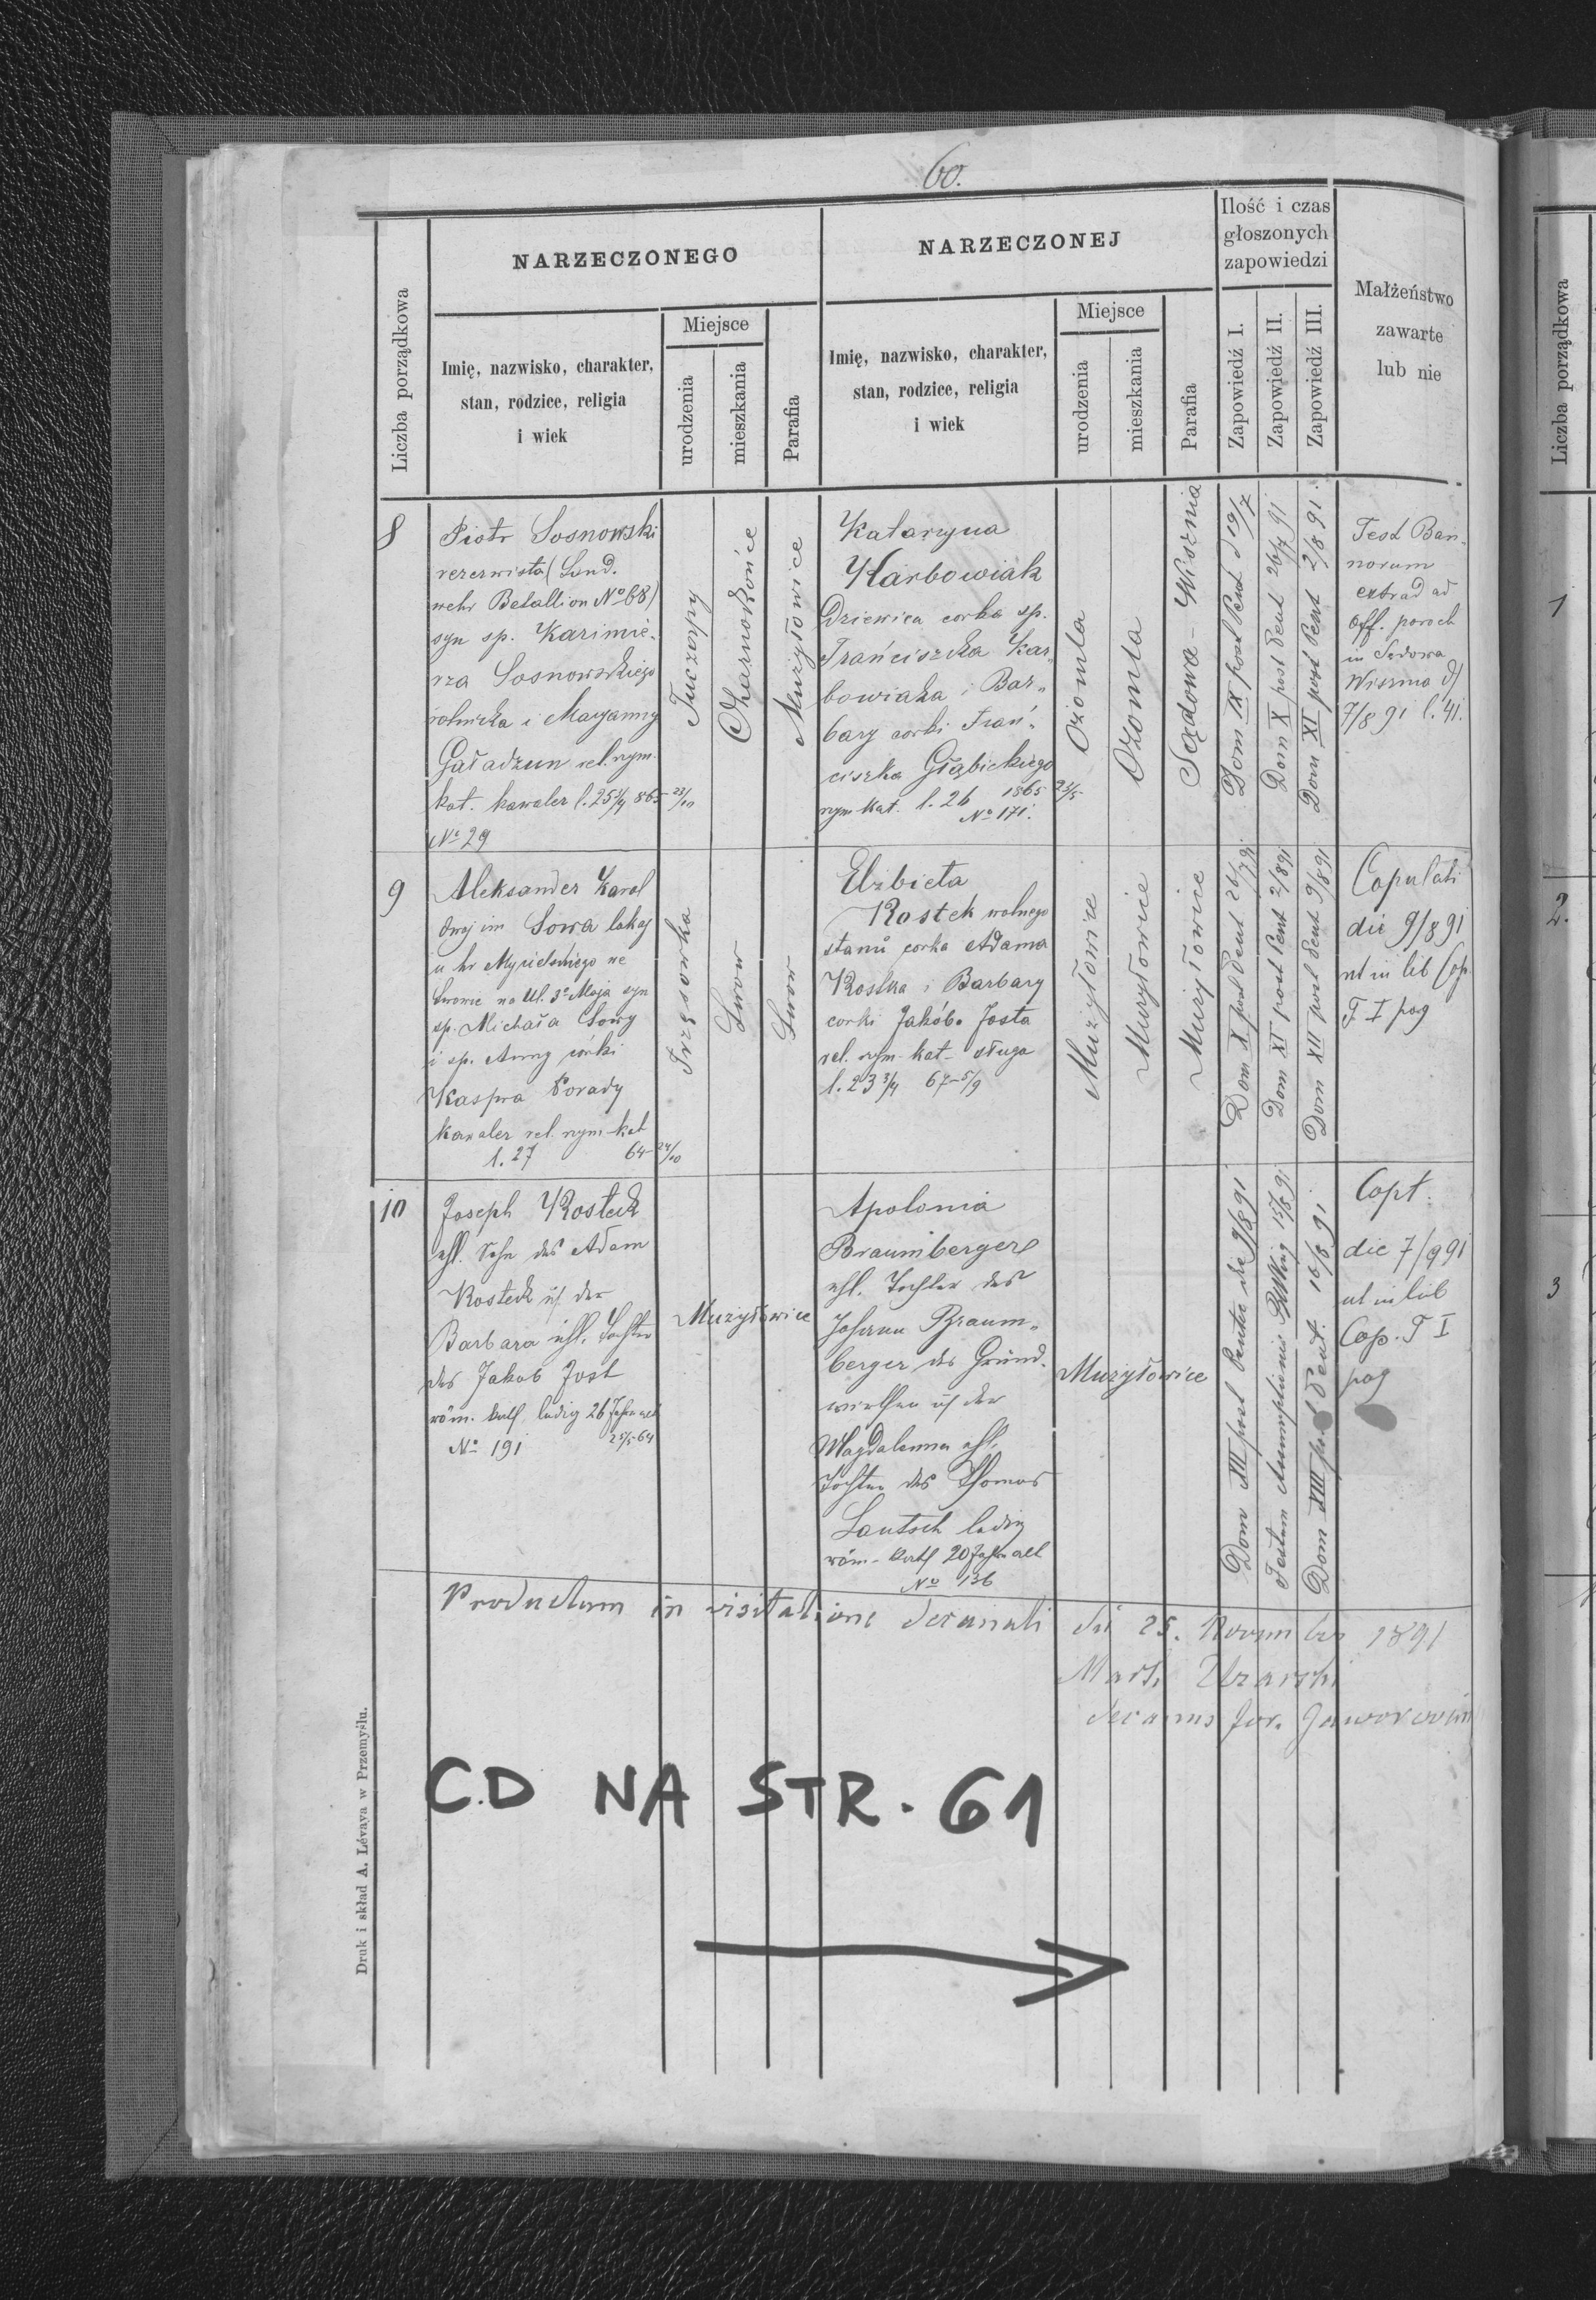 60.
NARZECZONEGO
NARZECZONEJ
Ilość i czas
głoszonych
zapowiedzi
Małżeństwo
zawarte
lub nie
Liczba porządkowa
Imię, nazwisko, charakter,
stan, rodzice, religia
i wiek
Miejsce
urodzenia
mieszkania
Parafia
Imię, nazwisko, charakter,
stan, rodzice, religia
i wiek
Miejsce
urodzenia
mieszkania
Parafia
Zapowiedź I.
Zapowiedź II.
Zapowiedź III.
8
Piotr Sosnowski
rezerwista (Land.
wehr Batallion No 68)
syn sp. Kazimie-
rza Sosnowskiego
rolnika i Maryanny
Gaładzun rel. rym.
kat. kawaler l. 25 3/4 865 23/10
No 29
Tuczapy
Czarnokońce
Mużyłowice
Katarzyna
Karbowiak
Dziewica corka sp.
Frańciszka Kar-
bowiaka i Bar-
bary corki Frań-
ciszka Głąbickiego
rym kat. l. 26 1865 23/5
No 171.
Ożomla
Ożomla
Sądowa-Wisznia
Dom IX post Pent d 19/7
Dom X post Pent 26/7 91
Dom XI post Pent 2/8 91.
Test Ban-
norum
extrad ad
Off. paroch
in Sądowa
Wisznia d)
7/8 91 l. 41.
9
Aleksander Karol
dwoj im Sowa lokaj
u hr Mycielskiego we
Lwowie na Ul. 3o Maja syn
sp. Michała Sowy
i sp. Anny córki
Kaspra Porady
kawaler rel. rym-kat
l. 27 64 24/10
Lwow
Lwow
Elżbieta
Rostek wolnego
stanu corka Adama
Rostka i Barbary
corki Jakóba Josta
rel. rym-kat-sługa
l. 23 3/4 67-5/9
Mużyłowice
Mużyłowice
Mużyłowice
Dom X post Pent 26/7 91
Dom XI post Pent 2/891
Dom XII post Pent 9/891
Copulati
die 9/8 91
ut in lib Cop
T I pag
10
Joseph Rosteck
ehl. Sohn des Adam
Rosteck u. der
Barbara ehl. Tochter
des Jakob Jost
röm. kath. ledig 26 Jahre alt
No 191 25/5-64
Mużyłowice
Apolonia
Braumberger
ehl. Tochter des
Johann Braum-
berger des Grund-
wirthen u. der
Magdalenna ehl.
Tochter des Thomas
Lautsch ledig
röm-kath 20 Jahre alt
No 136
Mużyłowice
Dom XII post Pente de 9/8 91.
Festum Assumptionis 15/8 91
Dom XIII post Pent. 16/8 91.
Copt.
die 7/9 91
ut in lib
Cop. T I
pag
Productum in visitatione decanali die 25. Novembr 1891
decanus for. Jaworovien
C.D NA STR. 61
Druk i skład A. Lévaya w Przemyślu.
Liczba porządkowa
1
2.
3